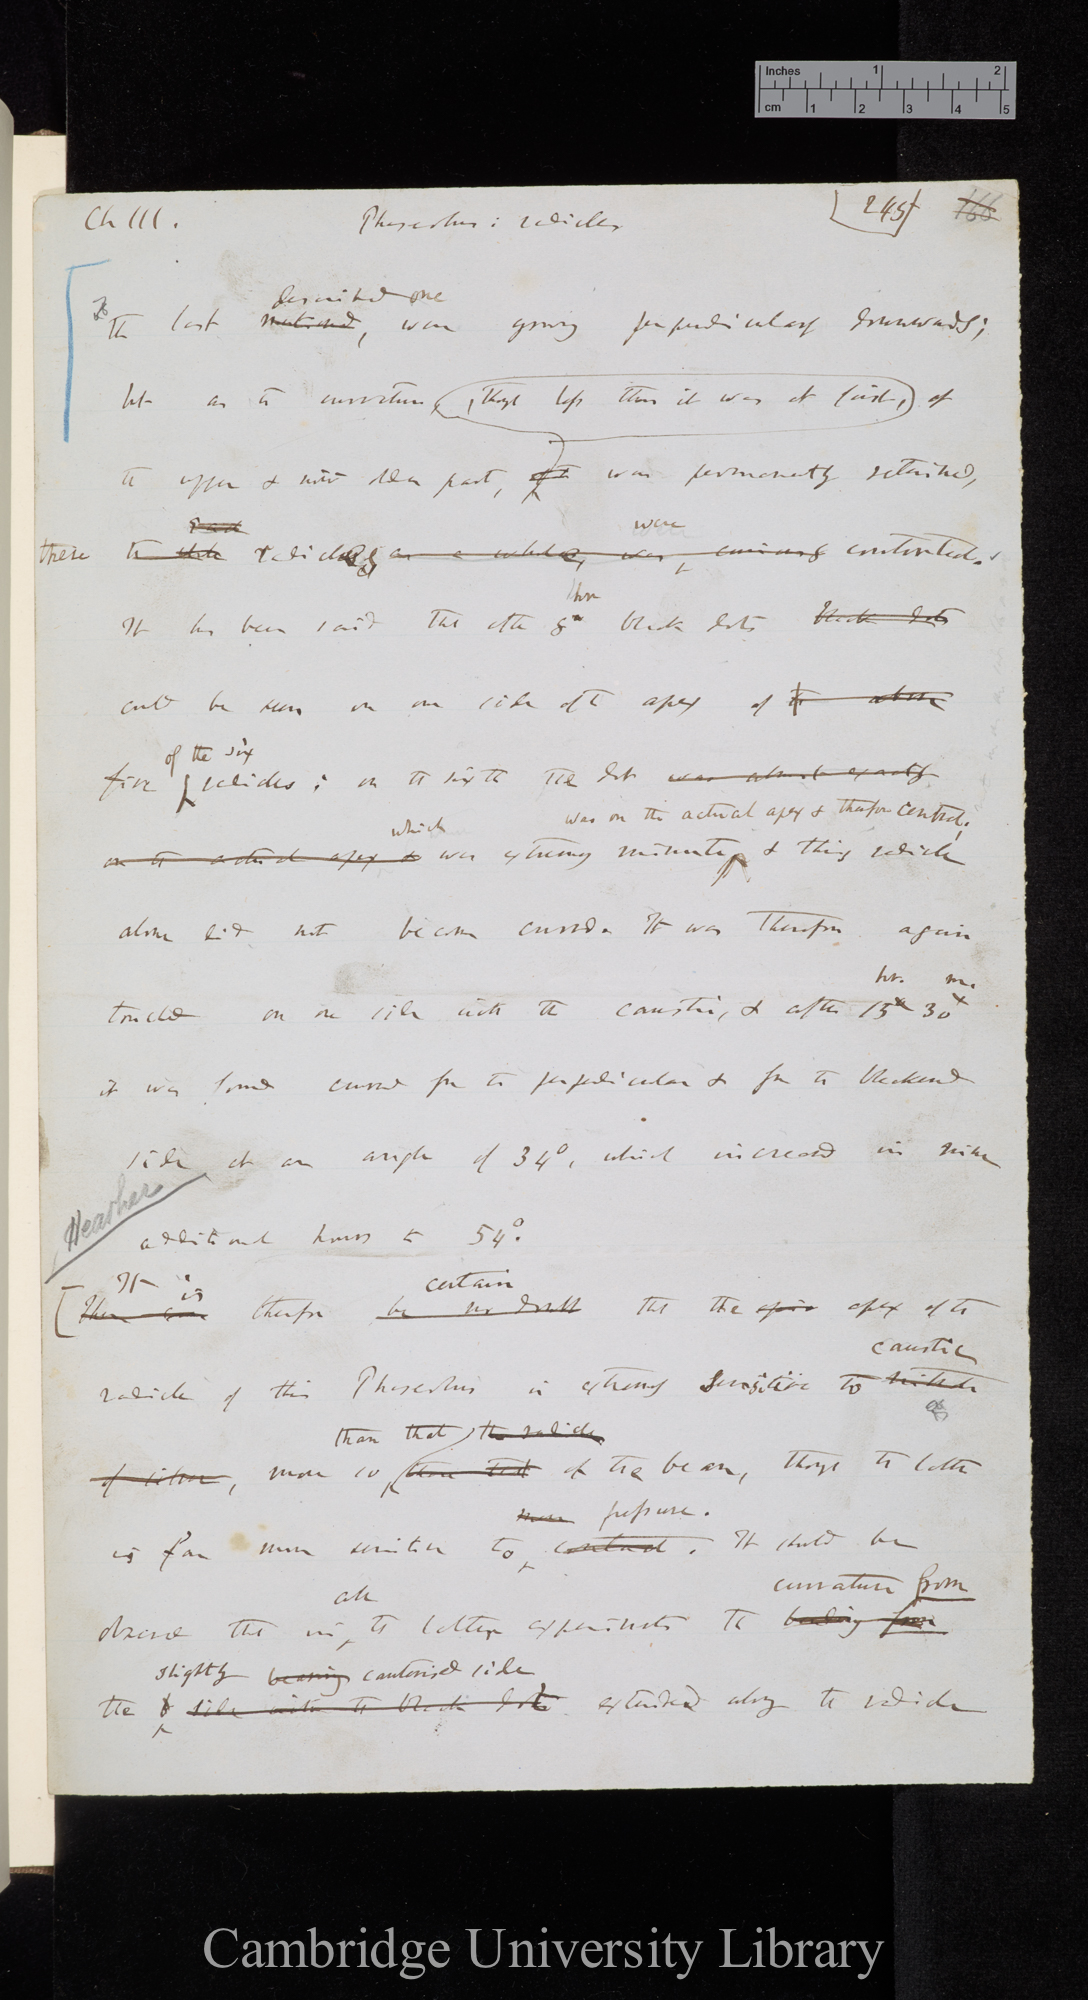 Inches 1 2
cm 1 2 3 4 5
Ch III. Phaseolus: radicles 245 166
described one
the last noticed, were growing perpendicularly downwards;
but as the curvature, (though less than it was at first,) of
the upper & now older part, was permanently retained,
were
these the radicles as a whole, was, curiously contorted.
hrs
It has been said that after 8 black dots black dots
could be seen on one side of the apex of the above
of the six
five radicles; on the sixth the dot was almost exactly
which was on the actual apex & therefore central;
on the actual apex & was extremely minute, & this radicle
alone did not become curved. It was therefore again
hr. m.
touched on one side with the caustic, & after 15 30
it was found curved from the perpendicular & from the blackened
side at an angle of 34°, which increased in nine
Heather
additional hours to 54°.
It is certain
There can therefore be no doubt that the apex of the
caustic
radicle of this Phaseolus is extremely sensitive to nitrate
than that the radicle
of silver, more so than that of the bean, though the latter
more pressure.
is far more sensitive to contact. It should be
all curvature from
observed that in the latter experiments the bending from
slightly bearing cauterised side
the side with the black dot extended along the radicle
Cambridge University Library